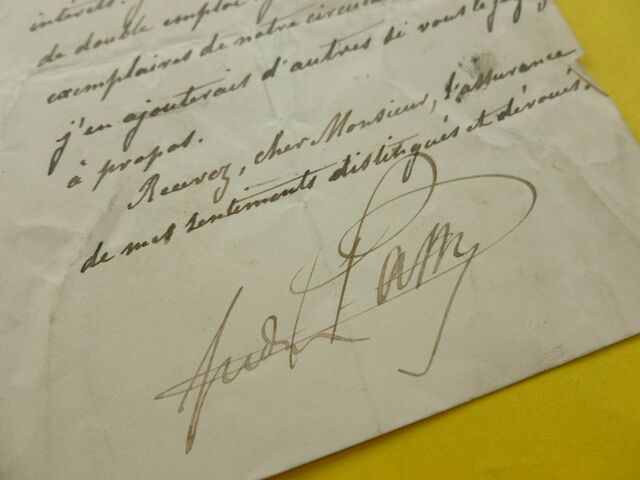 intérêts.
de double emploi
exemplaires de notre circulaire
j'en ajouterais d'autres si vous le jug
à propos.
Recevez, cher Monsieur, l'assurance
de mes sentiments distingués et dévoués.
Fréd Passy